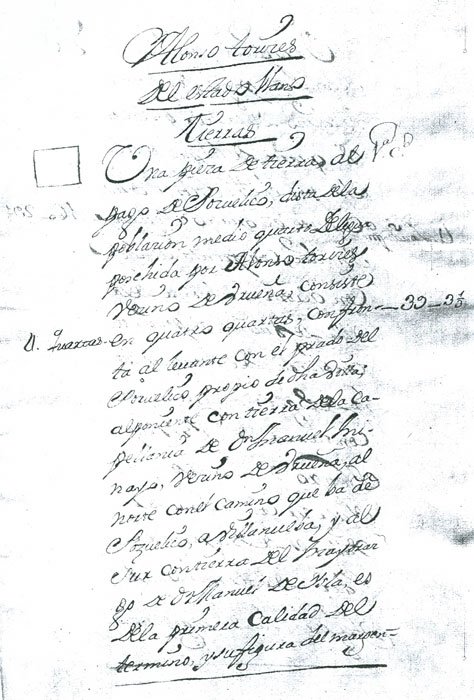 Alonso torres
Del estado Llano
Tierras
Una pieza de tierra, al
pago de Pozuelico, dista de la
poblazion medio quarto de legua
posehida por Alonso torres
Vezino de Drueña, consiste
4. Quartas. en quatro quartas, confron- 39-3½
ta al levante con el prado del
Pozuelico, propio de dha Villa,
al poniente con tierra de la Ca-
pellania de Dn Manuel
Vezino de Drueña, al
norte con el camino que ba de
Pozuelico, a Villanueba, y al
Sur con tierra del mayoraz
go de Dn Manuel de Isla, es
De la primera Calidad del
termino, y su figura del margen-